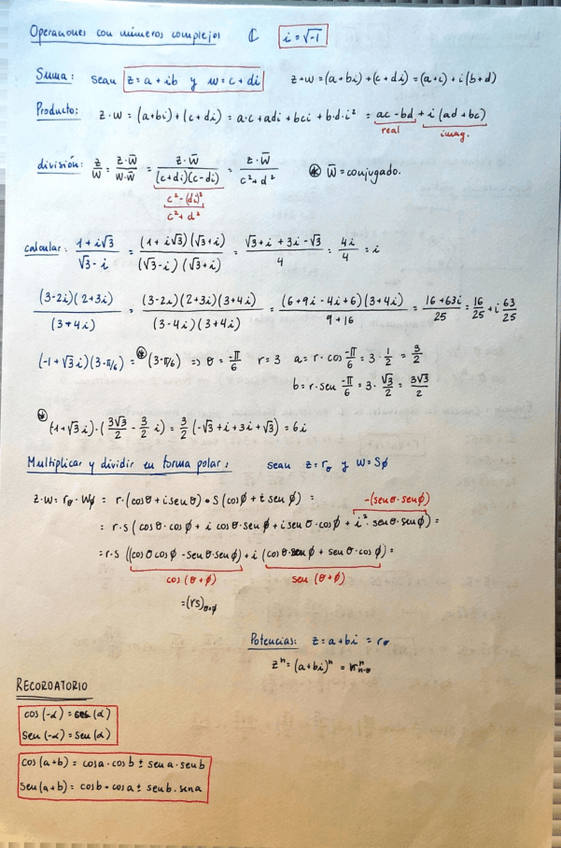 Operaciones con números complejos ℂ i = √-1
Suma: sean z = a + ib y w = c + di z + w = (a + bi) + (c + di) = (a + c) + i(b + d)
Producto: z · w = (a+bi) + (c + di) = a·c + adi + bci + b·d·i² = ac - bd + i (ad + bc)
real imag.
división: z/w = z·w̄/w·w̄ = z·w̄/(c+di)(c-di) = z·w̄/c²+d² * w̄ = conjugado.
c² - (di)²
c² + d²
calcular: 1 + i√3/√3 - i = (1 + i√3)(√3 + i)/(√3 - i)(√3 + i) = √3 + i + 3i - √3/4 = 4i/4 = i
(3-2i)(2+3i)/(3+4i) = (3-2i)(2+3i)(3+4i)/(3-4i)(3+4i) = (6+9i-4i+6)(3+4i)/9+16 = 16+63i/25 = 16/25 + i 63/25
(-1 + √3 i)(3-π/6) = * (3-π/6) ⇒ θ = -π/6 r = 3 a = r · cos -π/6 = 3 · 1/2 = 3/2
b = r · sen -π/6 = 3 · √3/2 = 3√3/2
* (1+√3 i) · (3√3/2 - 3/2 i) = 3/2 (-√3 + i + 3i + √3) = 6i
Multiplicar y dividir en forma polar: sean z = rθ y w = Sϕ
z·w = rθ · Wϕ = r · (cosθ + i senθ) • S (cosϕ + i senϕ) = -(senθ·senϕ)
= r·s (cosθ·cosϕ + i cosθ·senϕ + i senθ·cosϕ + i²·senθ·senϕ) =
= r·s ((cosθ cosϕ - senθ·senϕ) + i (cosθ·senϕ + senθ·cosϕ) =
cos (θ+ϕ) sen (θ+ϕ)
= (rs)θ+ϕ
Potencias: z = a + bi = rθ
zⁿ = (a+bi)ⁿ = rⁿn·θ
RECORDATORIO
cos (-α) = cos (α)
sen (-α) = sen (α)
cos (a+b) = cosa · cosb ± sena · senb
sen (a+b) = cosb · cosa ± senb · sena